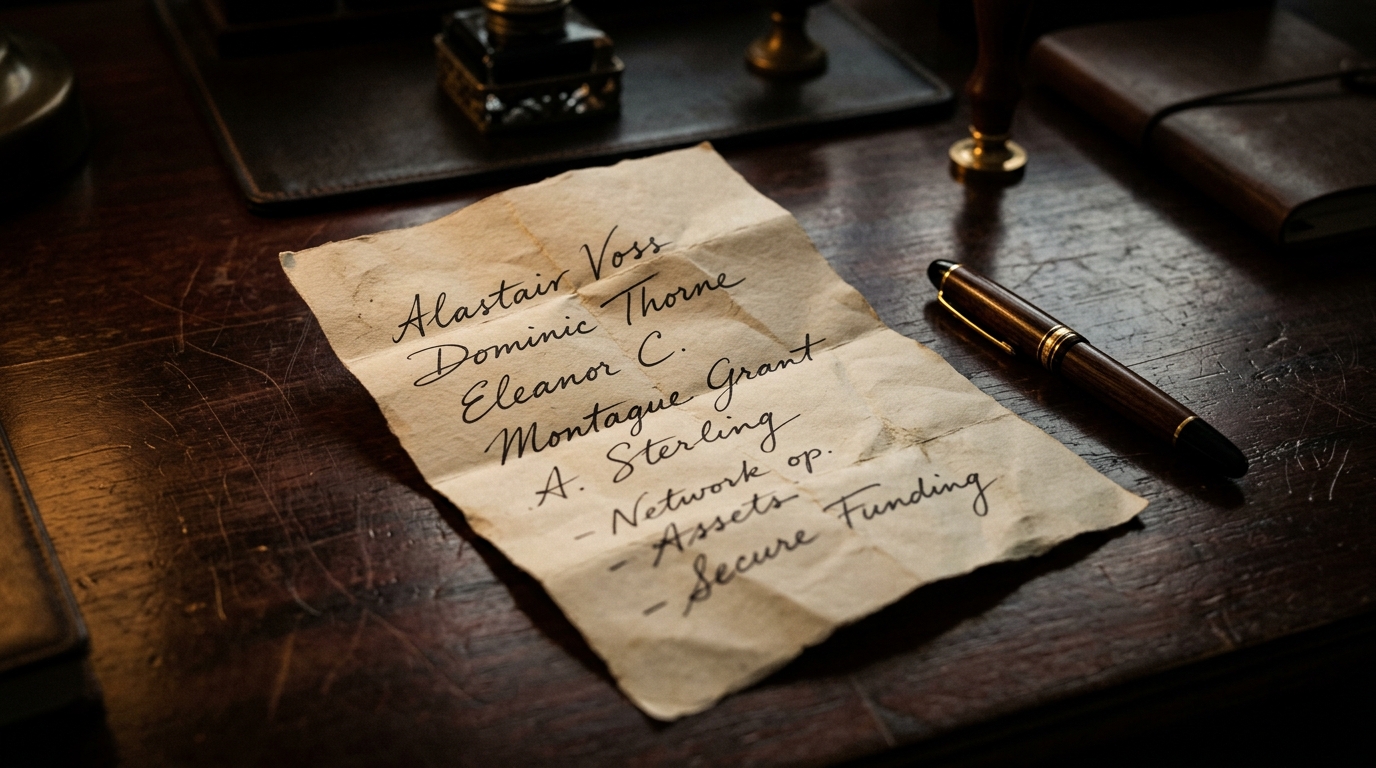 Alastair Voss
Dominic Thorne
Eleanor C.
Montague Grant
A. Sterling
- Network op.
- Assets
- Secure Funding